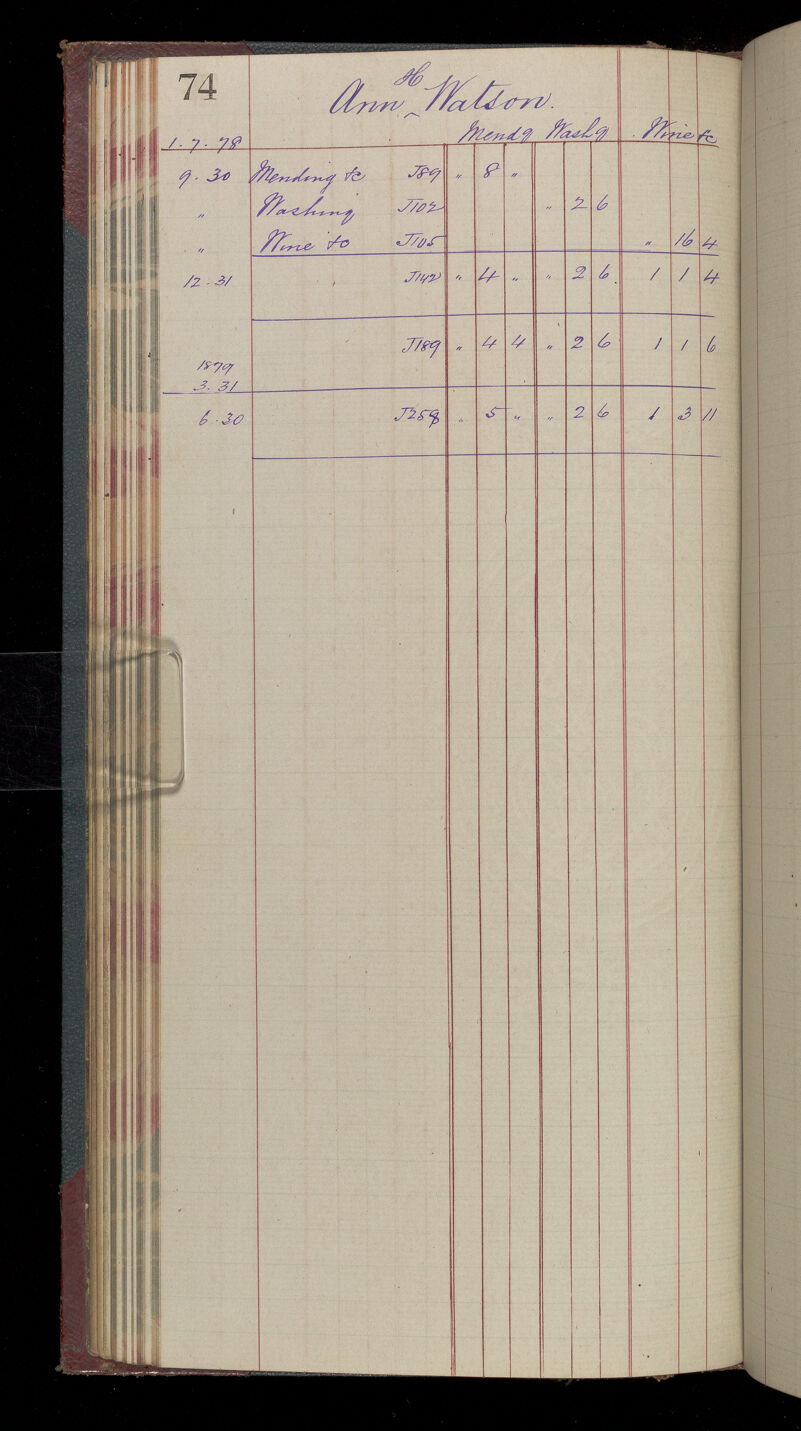 74
H
Ann ‸ Watson.
Mendg Washg Wine &c
1.7.78
9.30 Mending &c J89 " 8 "
" Washing J102 " 2 6
" Wine &c J105 " 16 4
12.31 J142 " 4 " " 2 6 1 1 4
J189 " 4 4 " 2 6 1 1 6
1879
3.31
6.30 J258 " 5 " " 2 6 1 3 11